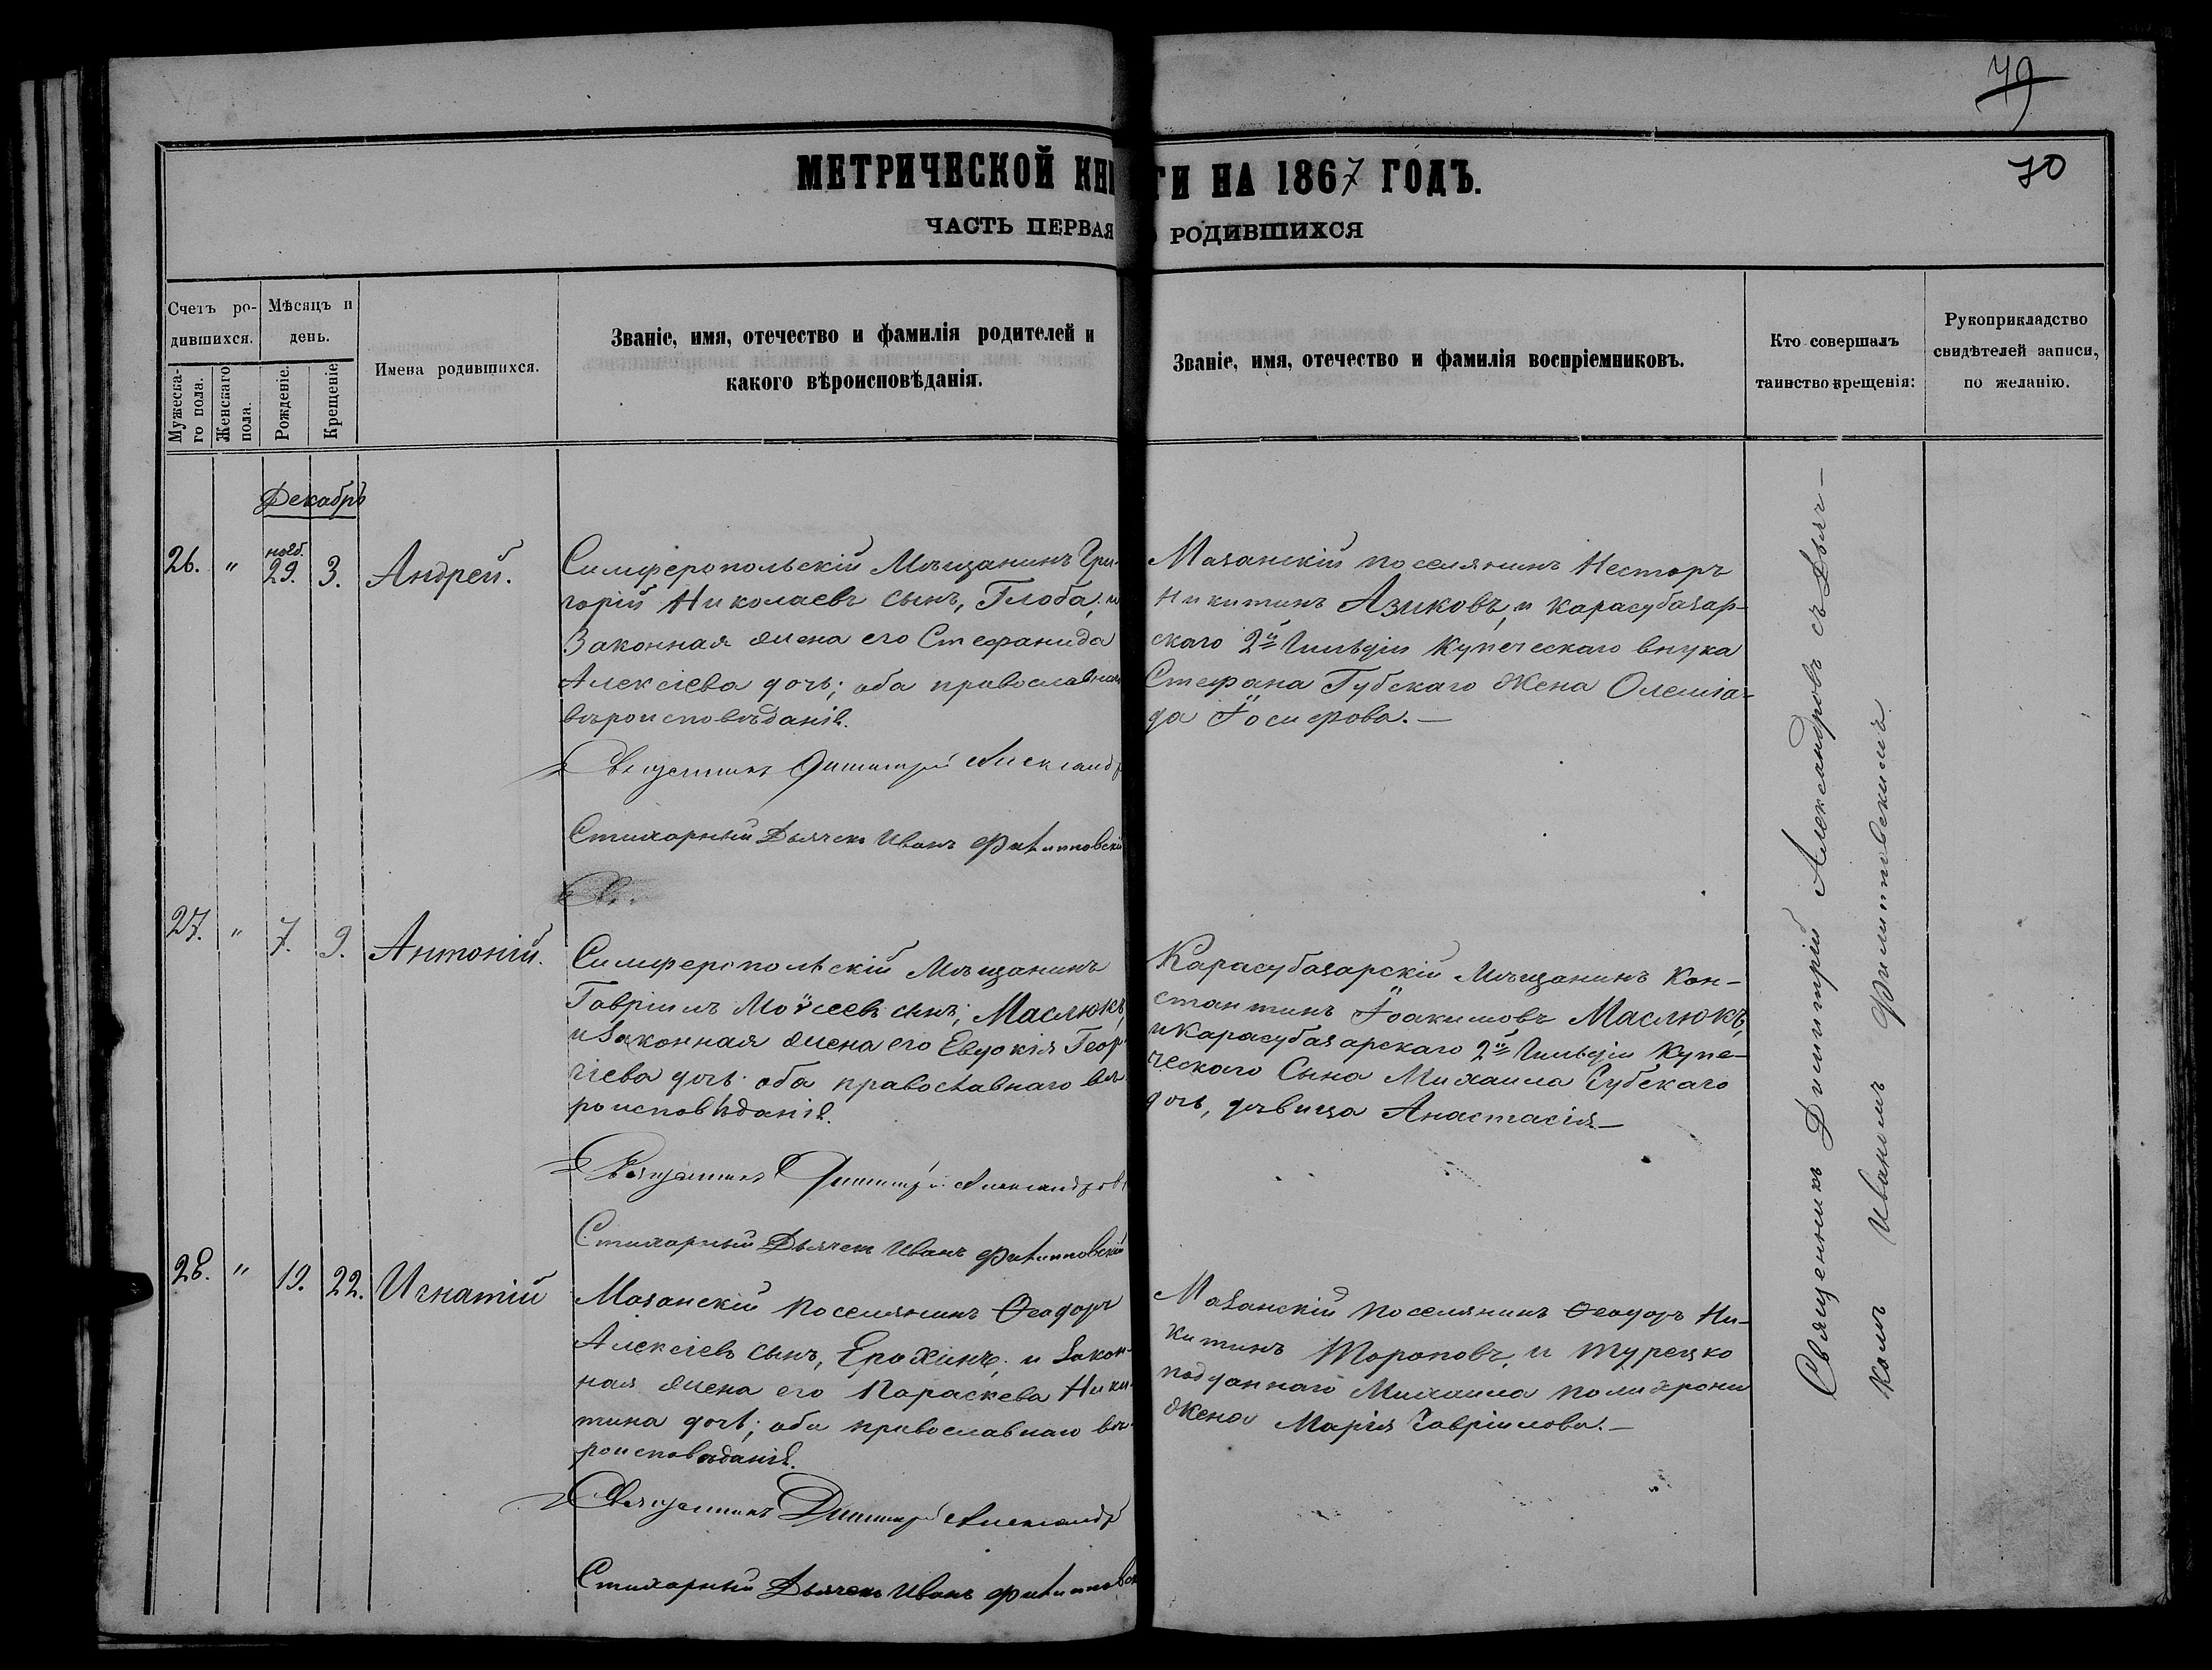 79
70
МЕТРИЧЕСКОЙ КНИ ГИ НА 1867 ГОДЪ.
ЧАСТЬ ПЕРВАЯ РОДИВШИХСЯ
Счетъ ро-
дившихся.
Мужеска-
го пола.
Женскаго
пола.
Мѣсяцъ и
день.
Рожденіе.
Крещеніе
Имена родившихся.
Званіе, имя, отечество и фамилія родителей и
какого вѣроисповѣданія.
Званіе, имя, отечество и фамилія воспріемниковъ.
Кто совершалъ
таинство крещенія:
Рукоприкладство
свидѣтелей записи,
по желанію.
Декабрь
26. " нояб. 29. 3. Андрей.
Симферопольскій Мѣщанинъ Гри-
горій Николаевъ сынъ, Глоба, и
Законная жена его Стефанида
Алексіева дочь; оба православнаго
вѣроисповѣданія.
Священникъ Димитрій Александр
Стихарный Дьячекъ Иванъ Филипповскій
Мазанскій поселянинъ Несторъ
Никитинъ Азиковъ, и карасубазар-
скаго 2й Гильдіи Купеческаго внука
Стефана Губскаго жена Олемпіа-
да Іосифова.—
Св.
27. " 7. 9. Антоній.
Симферопольскій Мѣщанинъ
Гавріилъ Моѵсеевъ сынъ, Маслюкъ,
и Законная жена его Евдокія Геор-
гіева дочь; оба православнаго вѣ-
роисповѣданія.
Священникъ Димитрій Александровъ
Стихарный Дьячекъ Иванъ Филипповскій
Карасубазарскій Мѣщанинъ Кон-
стантинъ Іоакимовъ Маслюкъ,
и Карасубазарскаго 2й Гильдіи Купе-
ческаго Сына Михаила Губскаго
дочь, дѣвица Анастасія—
28. " 19. 22. Игнатій
Мазанскій поселянинъ Ѳеодоръ
Алексіевъ сынъ, Ерохинъ; и Закон-
ная жена его Параскева Ники-
тина дочь; оба православнаго вѣ-
роисповѣданія.
Священникъ Димитрій Александр
Стихарный Дьячекъ Иванъ Филипповск
Мазанскій поселянинъ Ѳеодоръ Ни-
китинъ Тороповъ, и турецко
подданнаго Михаила полихрони
жена Марія Гавріилова.—
Священникъ Димитрій Александровъ съ Дьяч-
комъ Иваномъ Филипповскимъ